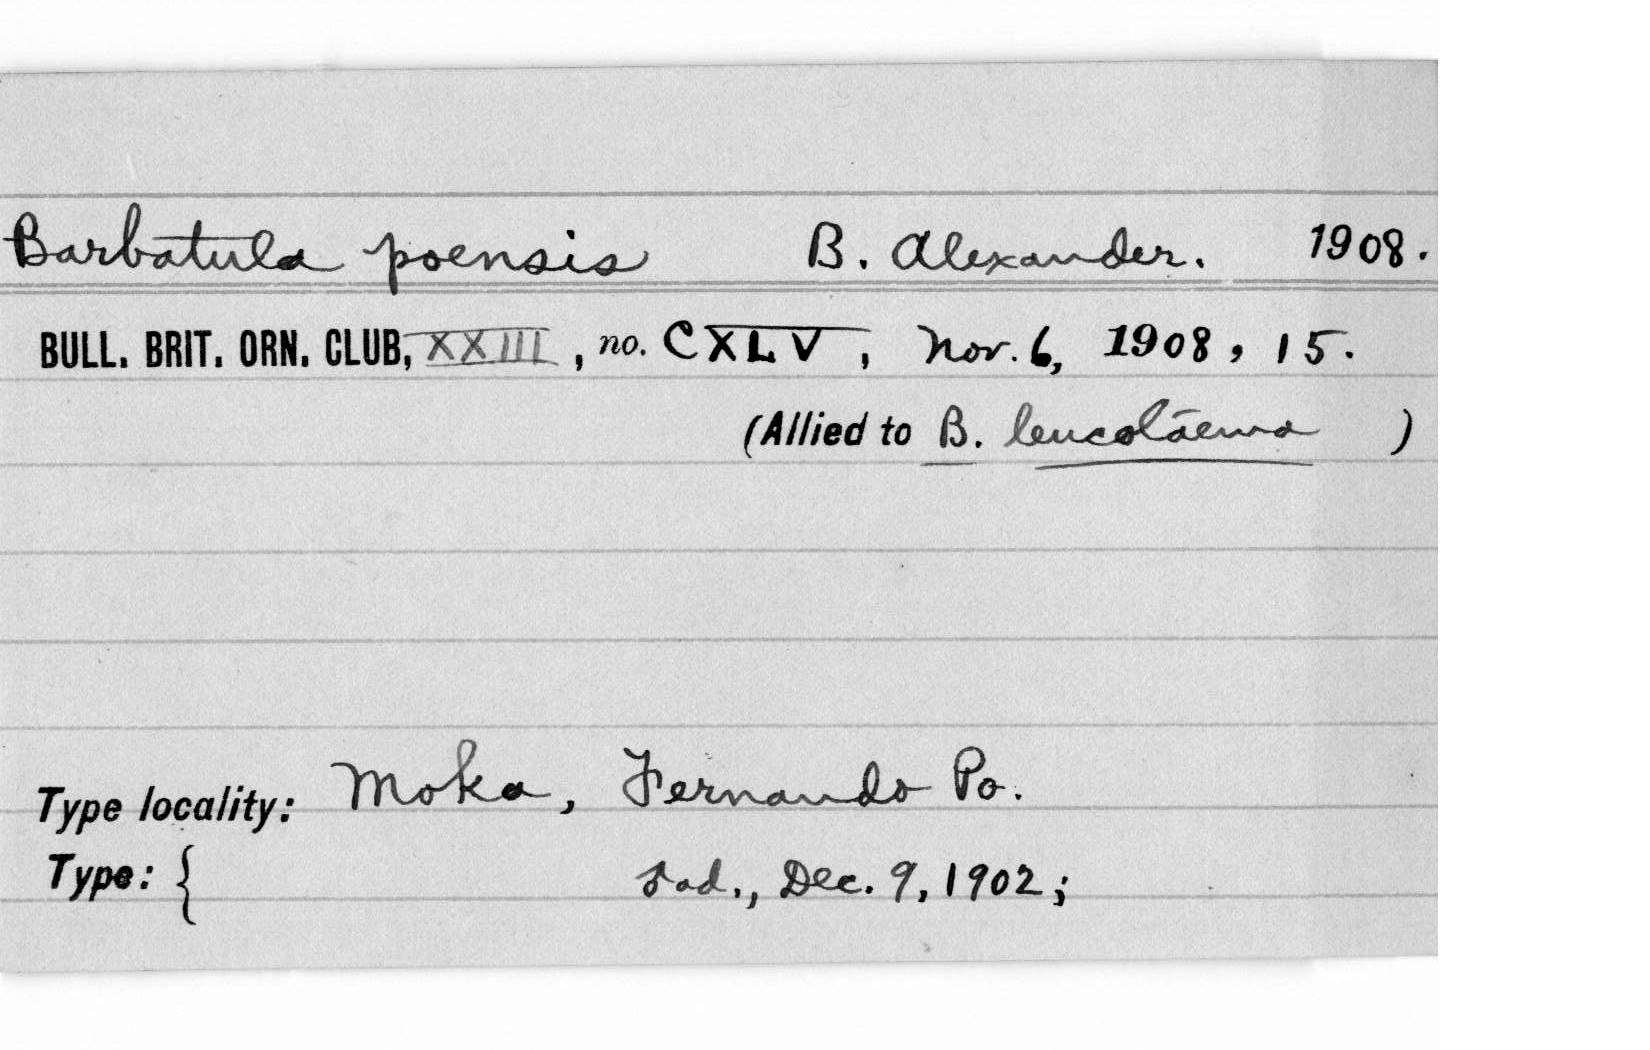 Barbatula poensis B. Alexander. 1908.
BULL. BRIT. ORN. CLUB, XXIII, no. CXLV, Nov. 6, 1908, 15.
(Allied to B. leucolæma )
Type locality: Moka, Fernando Po.
Type: { ♂ad., Dec. 9, 1902;